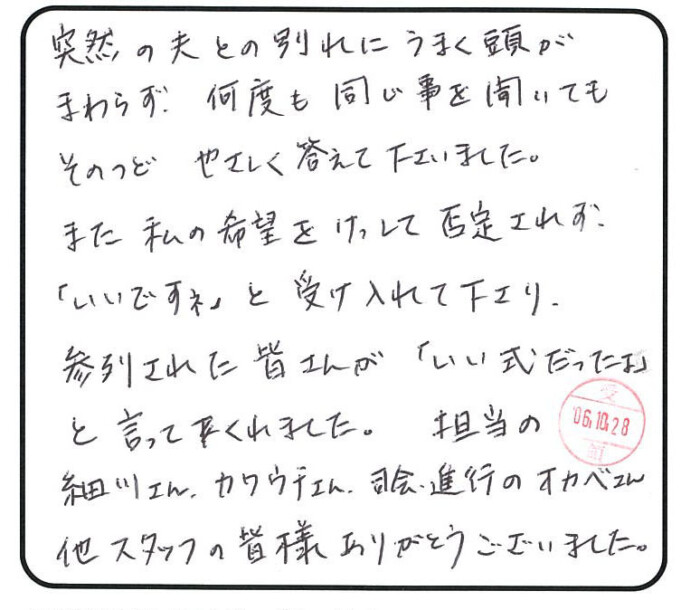 突然の夫との別れにうまく頭が
まわらず、何度も同じ事を聞いても
そのつど やさしく答えて下さいました。
また私の希望をけっして否定されず、
「いいですネ」と受け入れて下さり、
参列された皆さんが「いい式だったよ」
と言って下くれました。 担当の
受
'06.10.28
細川さん、カワウチさん、司会、進行のオカベさん
他スタッフの皆様ありがとうございました。